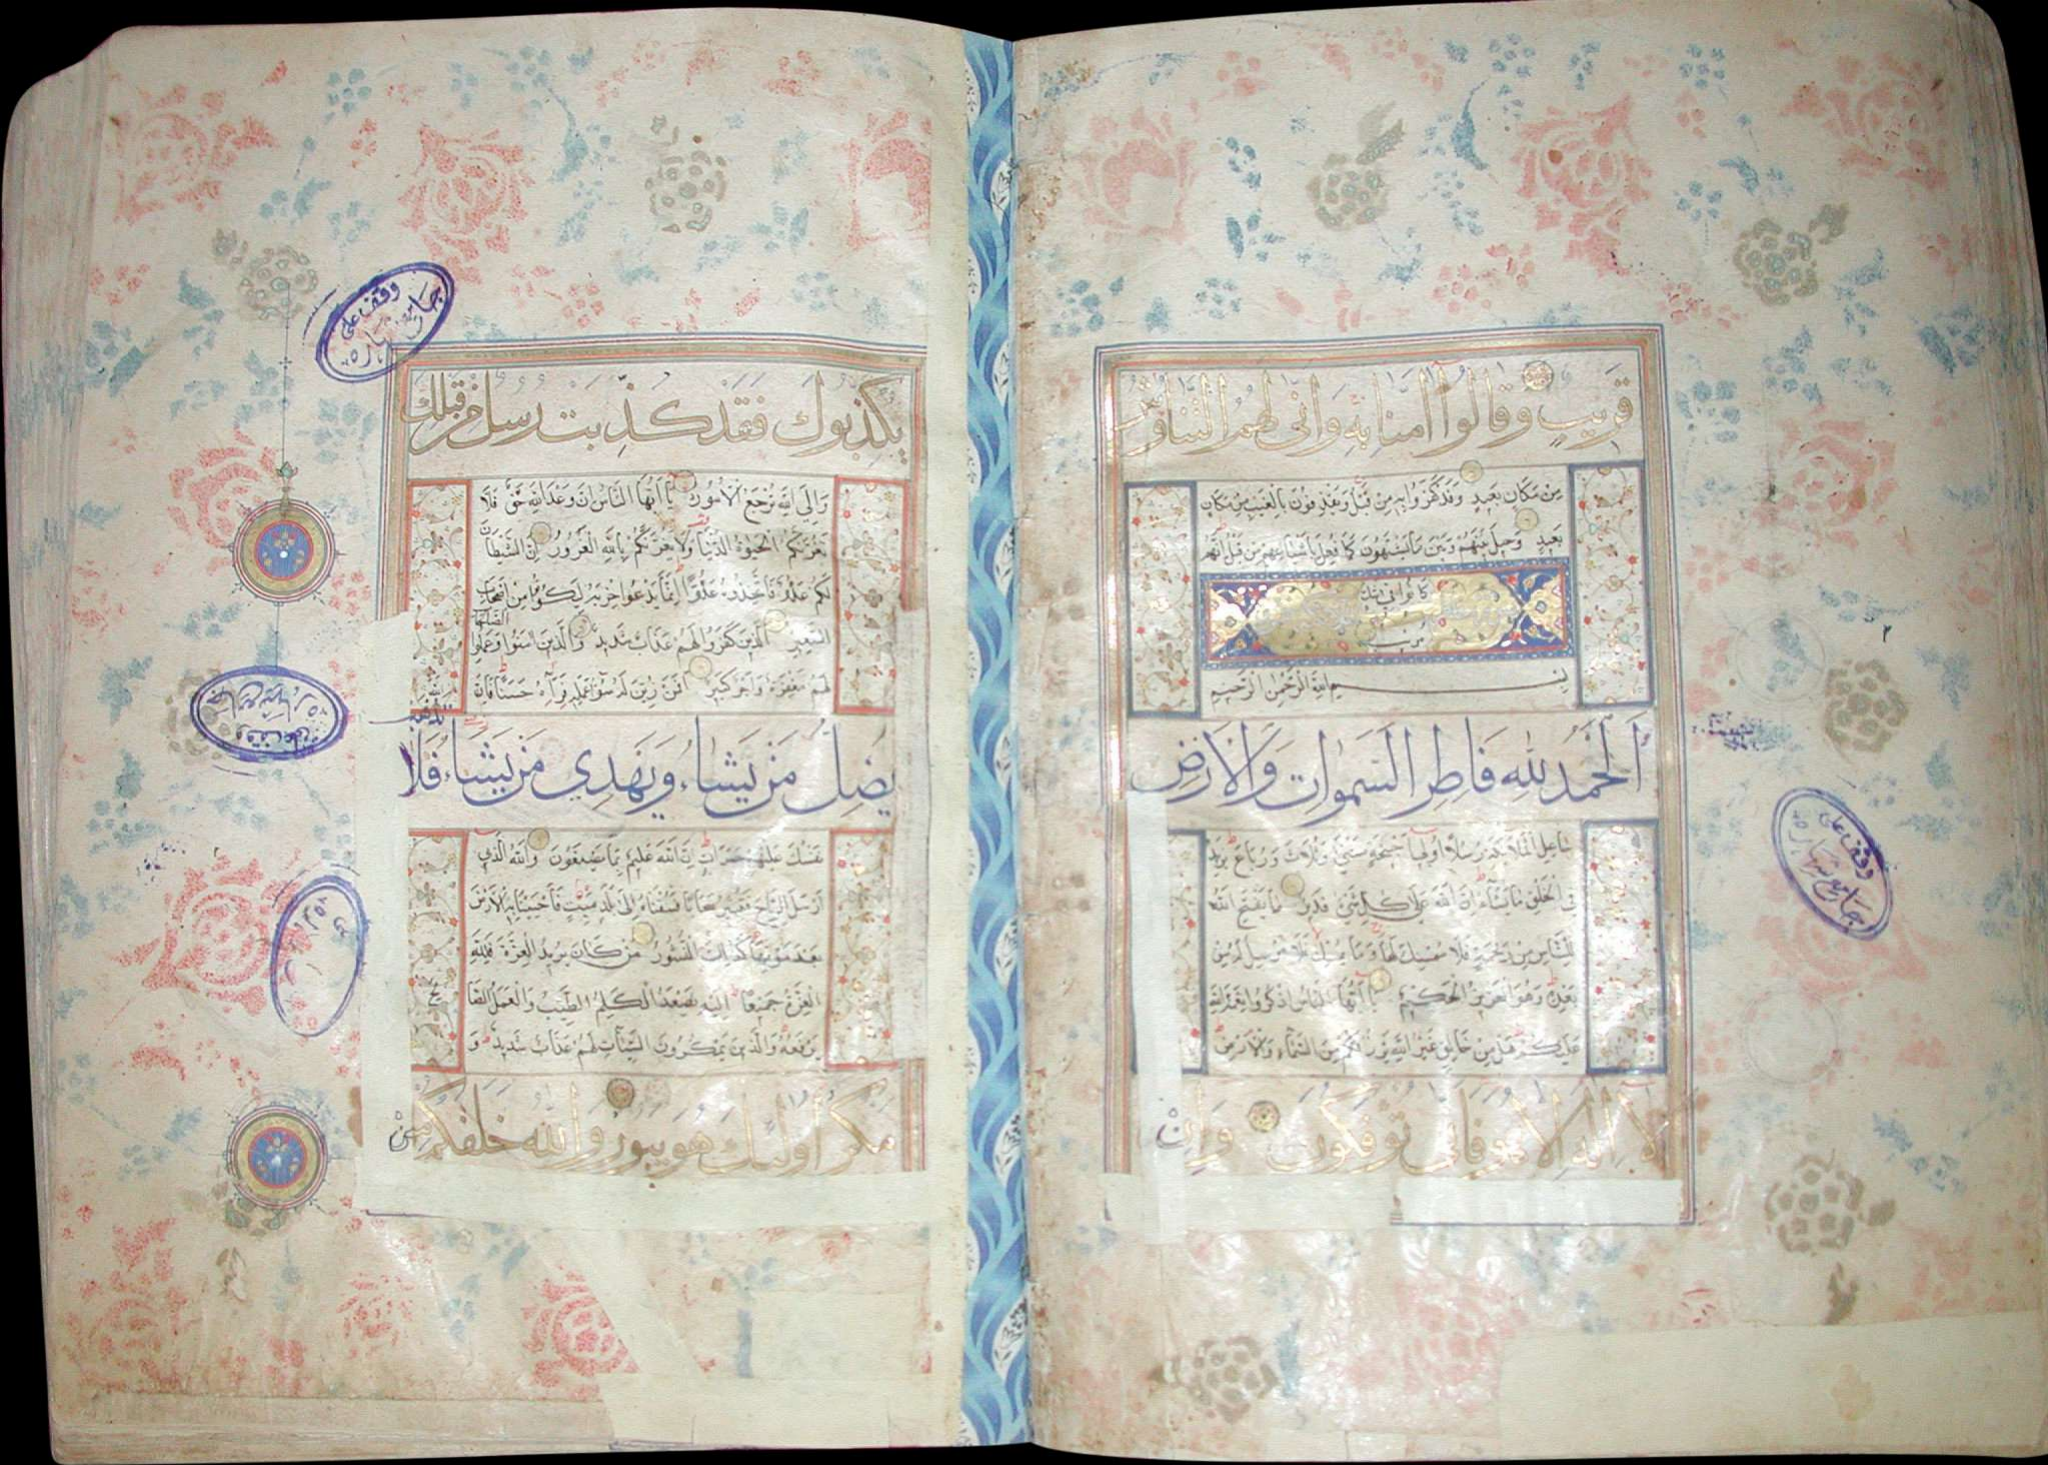 قريب وقالوا آمنا به وانى لهم التناوش
من مكان بعيد وقد كفروا به من قبل ويقذفون بالغيب من مكان
بعيد وحيل بينهم وبين ما يشتهون كما فعل باشياعهم من قبل انهم
كانوا في شك
مريب
بسم الله الرحمن الرحيم
اَلْحَمْدُ لله فاطر السموات والارض
جاعل الملائكة رسلا اولي اجنحة مثنى وثلاث ورباع يزيد
في الخلق ما يشاء ان الله على كل شئ قدير ما يفتح الله
للناس من رحمة فلا ممسك لها وما يمسك فلا مرسل له من
بعده وهو العزيز الحكيم يا ايها الناس اذكروا نعمة الله
عليكم هل من خالق غير الله يرزقكم من السماء والارض
لا اله الا هو فانى توفكون وان
وقف على
جامع شهارة
يكذبوك فقد كذبت رسل من قبلك
والى الله ترجع الامور يا ايها الناس ان وعد الله حق فلا
تغرنكم الحيوة الدنيا ولا يغرنكم بالله الغرور ان الشيطان
لكم عدو فاتخذوه عدوا انما يدعوا حزبه ليكونوا من اصحاب
السعير الذين كفروا لهم عذاب شديد والذين امنوا وعملوا
الصالحات
لهم مغفرة واجر كبير افمن زين له سوء عمله فرآه حسنا فان
الله
يضل من يشاء ويهدي من يشاء فلا
تذهب
نفسك عليهم حسرات ان الله عليم بما يصنعون والله الذي
ارسل الرياح فتثير سحابا فسقناه الى بلد ميت فاحيينا به الارض
بعد موتها كذلك النشور من كان يريد العزة فلله
العزة جميعا اليه يصعد الكلم الطيب والعمل الصالح
يرفعه والذين يمكرون السيئات لهم عذاب شديد و
مكر اولئك هو يبور والله خلقكم من
وقف على
جامع شهارة
وقف على
جامع شهارة